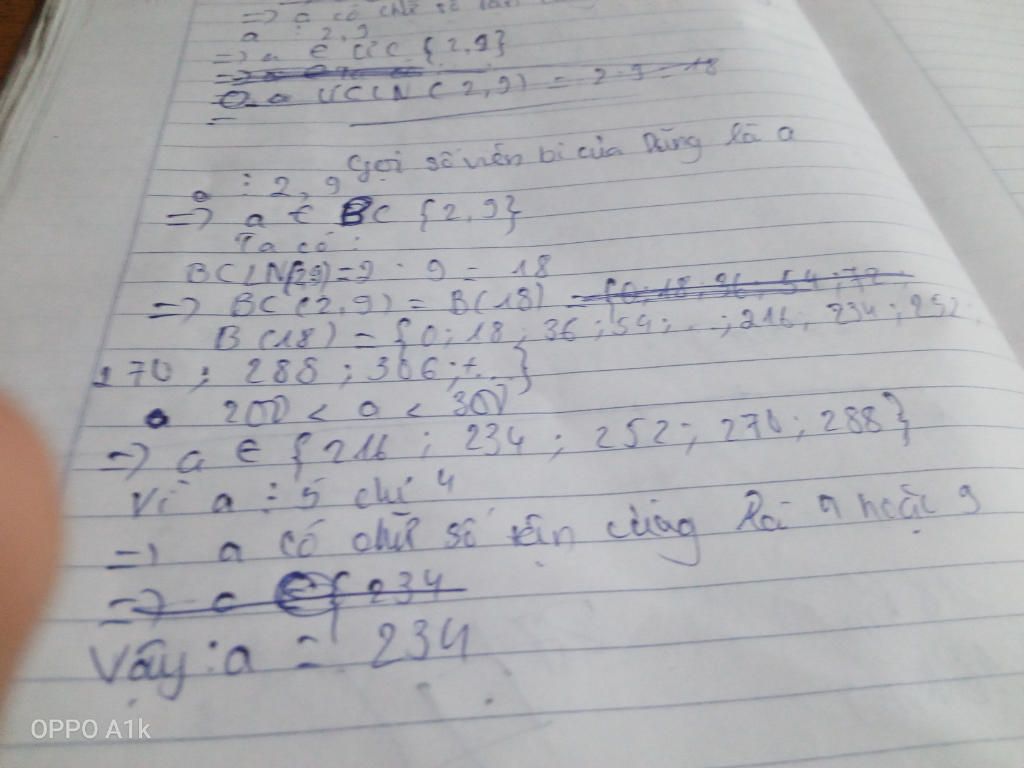 => a có chữ số tận
a ⋮ 2, 9
=> a ∈ ƯC {2,9}
ƯCLN (2,9) = 2 · 9 = 18
Gọi số viên bi của Dũng là a
a ⋮ 2, 9
=> a ∈ BC {2,9}
Ta có :
BCLN(2,9) = 2 · 9 = 18
=> BC (2,9) = B(18) = {0; 18; 36; 54; 72;
B(18) = {0; 18; 36; 54; ..; 216; 234; 252;
270; 288; 306; ...}
200 < a < 300
=> a ∈ {216; 234; 252; 270; 288}
Vì a ⋮ 5 chỉ 4
=> a có chữ số tận cùng là 4 hoặc 9
=> a ∈ { 234
Vậy : a = 234
OPPO A1k